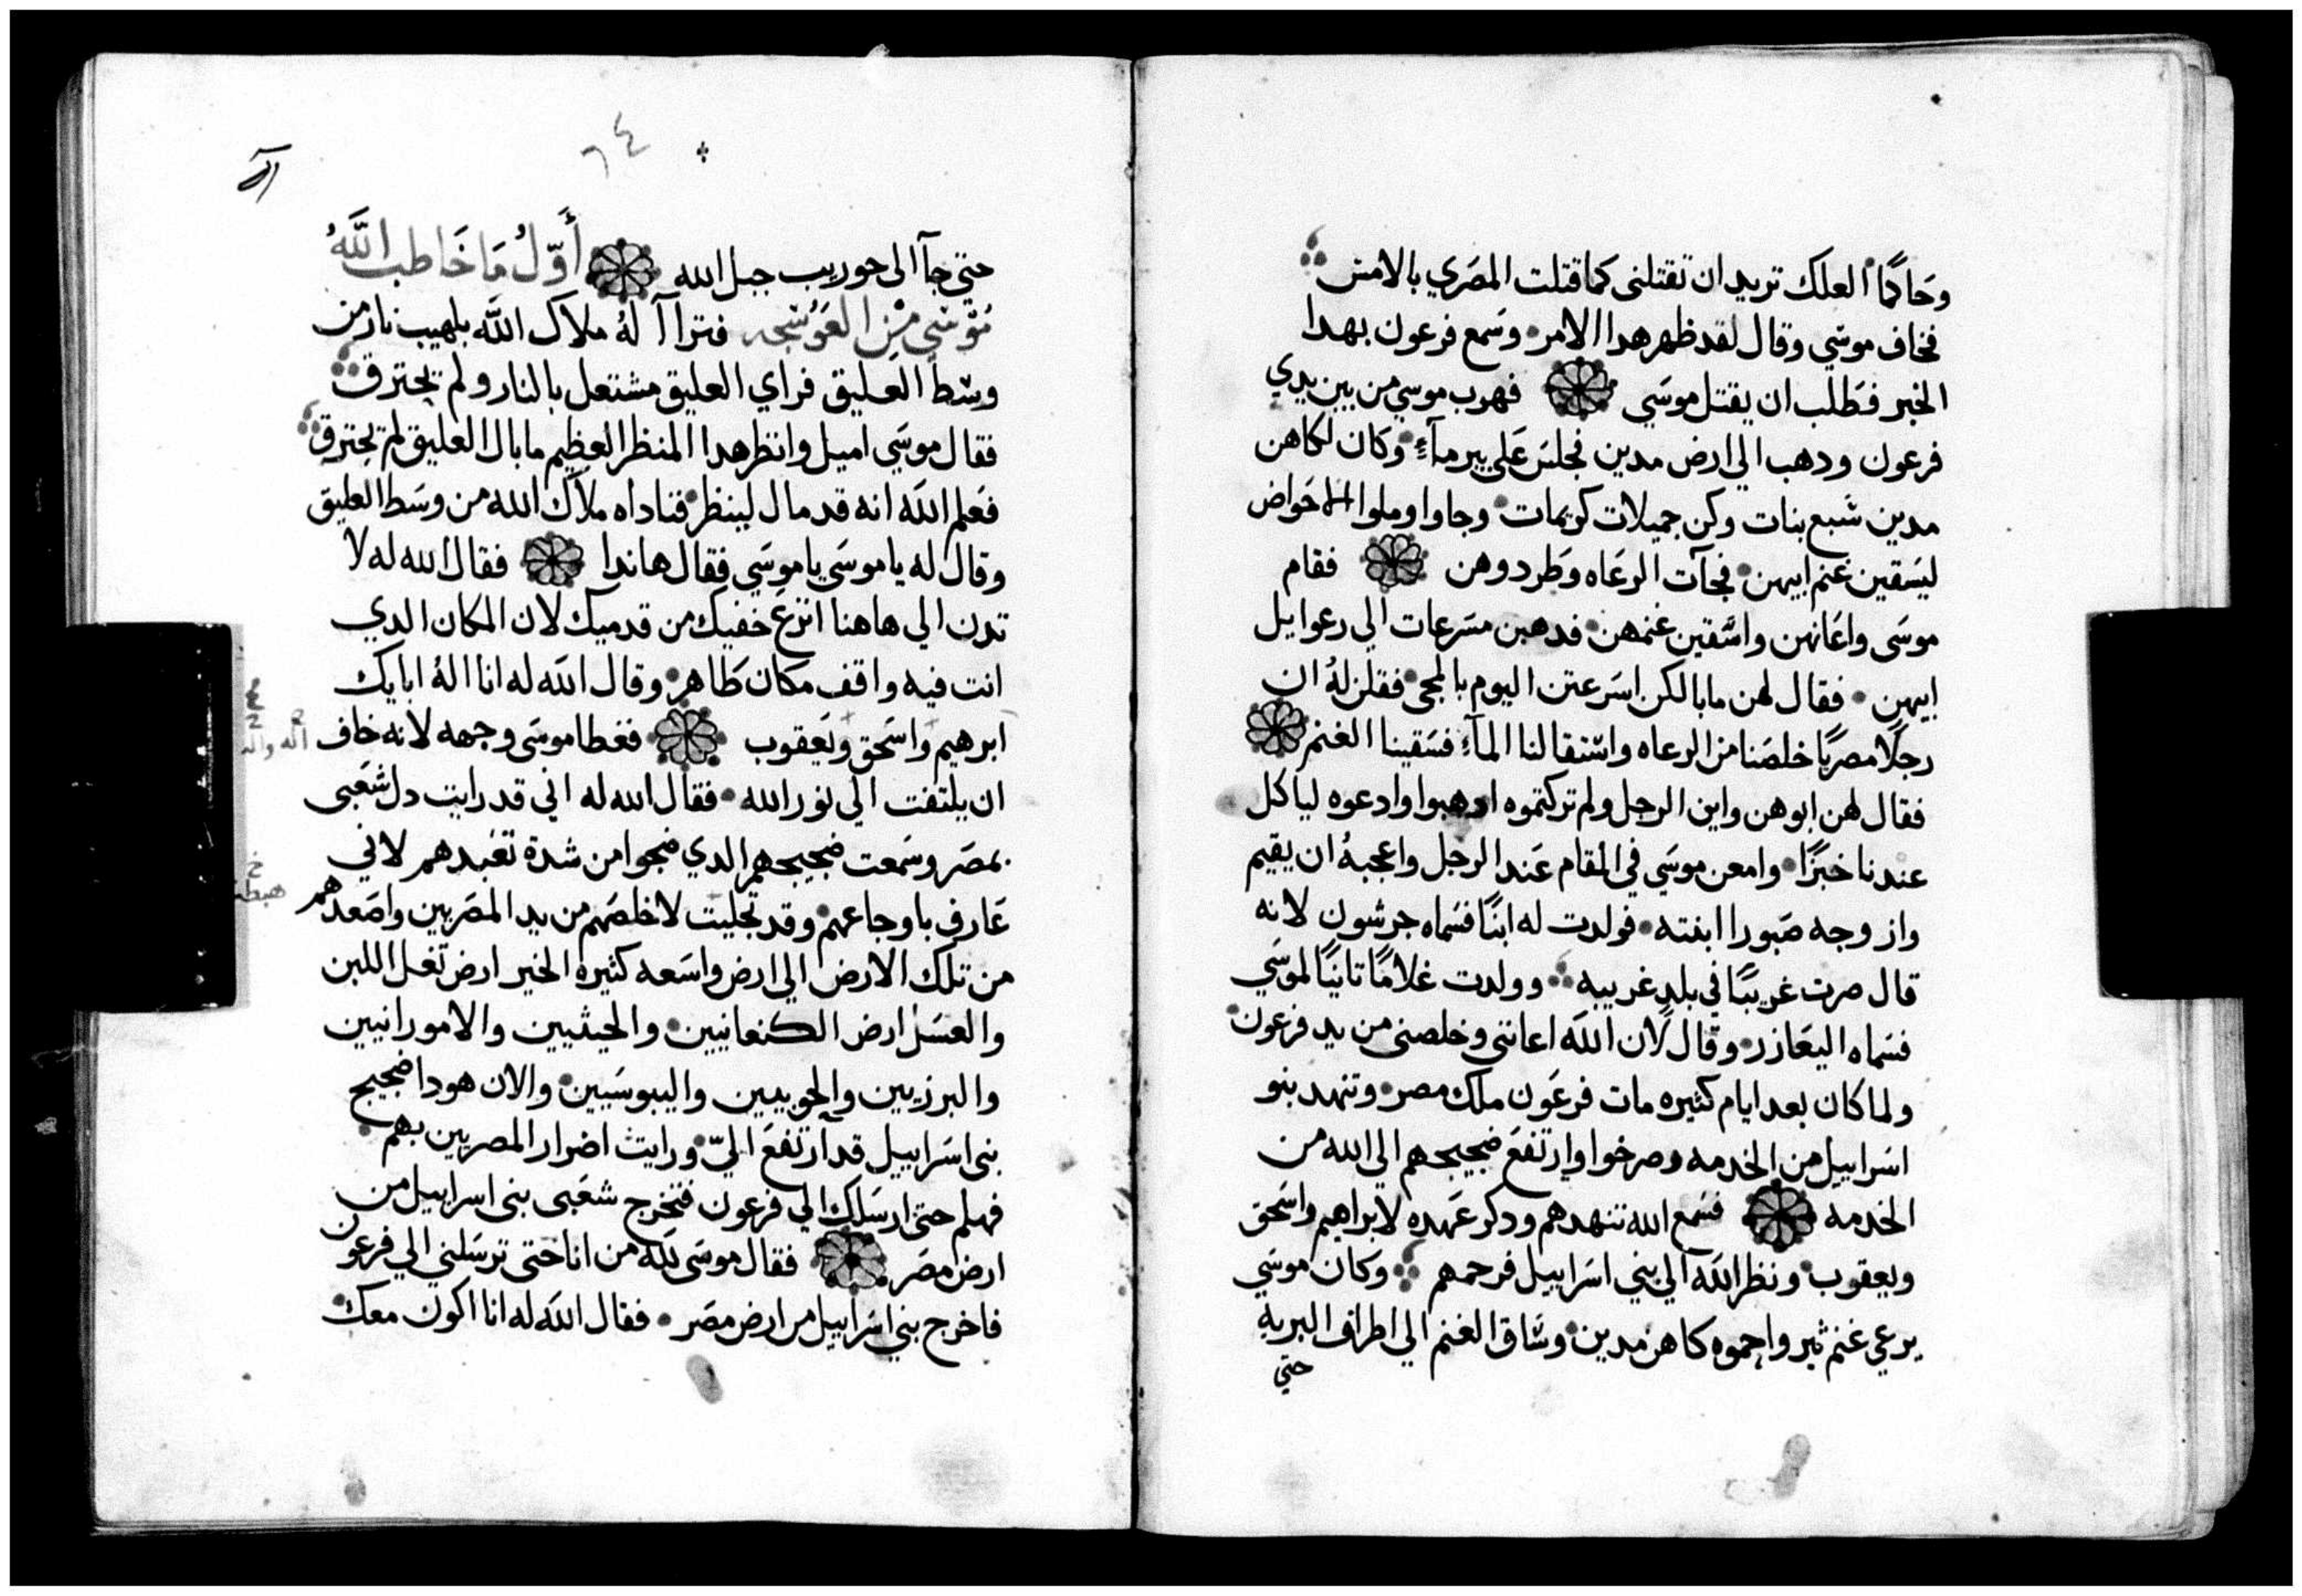 وحاكمًا العلك تريد ان تقتلنى كما قتلت المصري بالامس
فخاف موسي وقال لقد ظهر هدا الامر وسمع فرعون بهدا
الخبر فطلب ان يقتل موسي فهرب موسي من بين يدي
فرعون ودهب الي ارض مدين فجلس علي بير مآءٍ وكان لكاهن
مدين سبع بنات وكن جميلات كريمات وجاوا وملوا الاحواض
ليسقين غنم ابيهن فجآت الرعاه وطردوهن فقام
موسى واعانهن واسقين غنمهن فدهبن مسرعات الي رعوايل
ابيهن فقال لهن ما بالكن اسرعتن اليوم بالمجى فقلن لهُ ان
رجلًا مصريًا خلصنا من الرعاه واستقا لنا المآءِ فسقينا الغنم
فقال لهن ابوهن واين الرجل ولم تركتموه ادهبوا وادعوه لياكل
عندنا خبزًا وامعن موسي في المقام عند الرجل واعجبهُ ان يقيم
وازوجه صبورا ابنته فولدت له ابنًا فسماه جرشون لانه
قال صرت غريبًا في بلدٍ غريبه وولدت غلامًا تانيًا لموسي
فسماه اليعازر وقال لان الله اعانني وخلصنى من يد فرعون
ولما كان بعد ايام كثيره مات فرعون ملك مصر وتنهد بنو
اسراييل من الخدمه وصرخوا وارتفع ضجيجهم الي الله من
الخدمه فسمع الله تنهدهم ودكر عهده لابراهيم واسحق
ويعقوب ونظر الله الي بني اسراييل فرحمهم وكان موسي
يرعي غنم ثيروا حموه كاهن مدين وساق الغنم الي اطراف البريه
حتي
٦٤
حتي جآ الى حوريب جبل الله أوّلُ مَا خَاطب اللَّهُ
مُوسَي مِنِ العَوسَجه فترا آ لهُ ملاك الله بلهيب نار من
وسط العليق فراي العليق مشتعل بالنار ولم يحترق
فقال موسي اميل وانظر هدا المنظر العظيم ما بال العليق لم يحترق
فعلم الله انه قد مال لينظر فناداه ملاك الله من وسط العليق
وقال له يا موسي يا موسي فقال هاندا فقال الله له لا
تدن الي هاهنا انزع خفيك من قدميك لان المكان الدي
انت فيه واقف مكان طاهر وقال الله له انا الهُ ابايك
ابرهيم واسحق ويعقوب فغطا موسى وجهه لانه خاف
ان يلتفت الي نور الله فقال الله له اني قد رايت دل شعبى
بمصر وسمعت ضجيجهم الدي ضجوا من شدة تعبدهم لاني
عارف باوجاعهم وقد تجليت لاخلصهم من يد المصريين واصعدهم
من تلك الارض الي ارض واسعه كثيره الخير ارض تغل اللبن
والعسل ارض الكنعانيين والحيثيين والامورانيين
والبرزيين والحويين واليبوسيين والان هودا ضجيج
بنى اسراييل قد ارتفع اليّ ورايت اضرار المصريين بهم
فهلم حتى ارسلك الي فرعون فتخرج شعبى بنى اسراييل من
ارض مصر فقال موسى لله من انا حتى ترسلني الي فرعون
فاخرج بني اسراييل من ارض مصر فقال الله له انا اكون معك